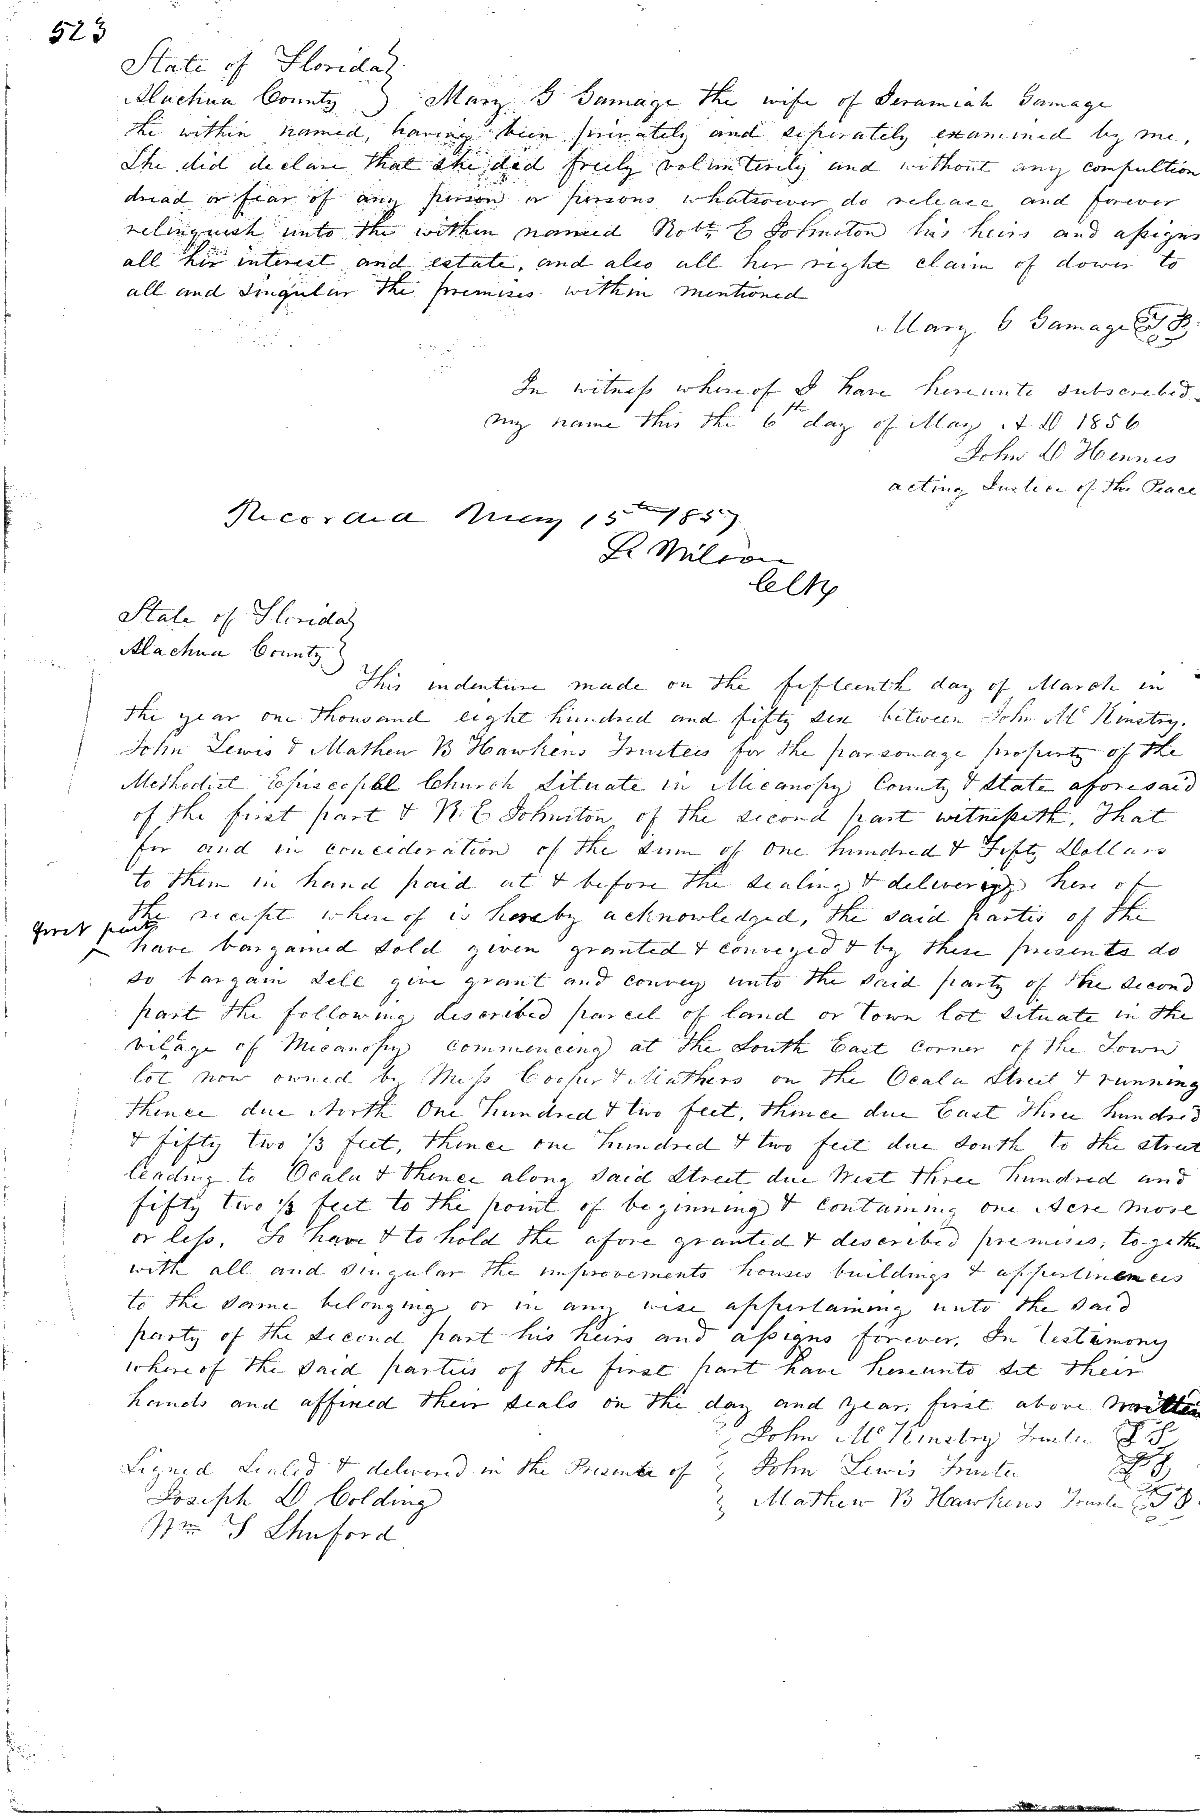 523
State of Florida
Alachua County } Mary G Gamage the wife of Jeramiah Gamage
the within named, having been privately and seperately examined by me,
She did declare that she did freely volunterily and without any compultion
dread or fear of any person or persons whatsoever do release and forever
relinquish unto the within named Robt. E Johnston his heirs and assigns
all her interest and estate, and also all her right claim of dower to
all and singular the premises within mentioned
Mary G Gamage
In witness whereof I have hereunto subscribed
my name this the 6th day of May A D 1856
John D Hennis
acting Justice of the Peace
Recorded May 15th 1857
L Wilson
Clk
State of Florida
Alachua County }
This indenture made on the fifteenth day of March in
the year one thousand eight hundred and fifty six between John McKinstry,
John Lewis & Mathew B Hawkins Trustees for the parsonage property of the
Methodist Episcopal Church situate in Micanopy County & State aforesaid
of the first part & R. E Johnston of the second part witnesseth, That
for and in concideration of the sum of One hundred & Fifty Dollars
to them in hand paid at & before the sealing & delivering here of
the receipt where of is hereby acknowledged, the said parties of the
first part
have bargained sold given granted & conveyed & by these presents do
so bargain sell give grant and convey unto the said party of the second
part the following described parcel of land or Town lot situate in the
village of Micanopy commencing at the South East corner of the Town
lot now owned by Mess Cooper & Mathers on the Ocala Street & running
thence due North One hundred & two feet, thence due East three hundred
& fifty two 1/3 feet, thence one hundred & two feet due South to the street
leading to Ocala & thence along said Street due West three hundred and
fifty two 1/3 feet to the point of beginning & containing one Acre more
or less, To have & to hold the afore granted & described premises, together
with all and singular the improvements houses buildings & appertinences
to the same belonging or in any wise appertaining unto the said
party of the second part his heirs and assigns forever, In Testimony
where of the said parties of the first part have hereunto set their
hands and affixed their seals on the day and year, first above written
John McKinstry Trustee L S
Signed Sealed & delivered in the Presence of } John Lewis Trustee L S
Joseph D Colding } Mathew B Hawkens Trustee L S
Wm S Shuford